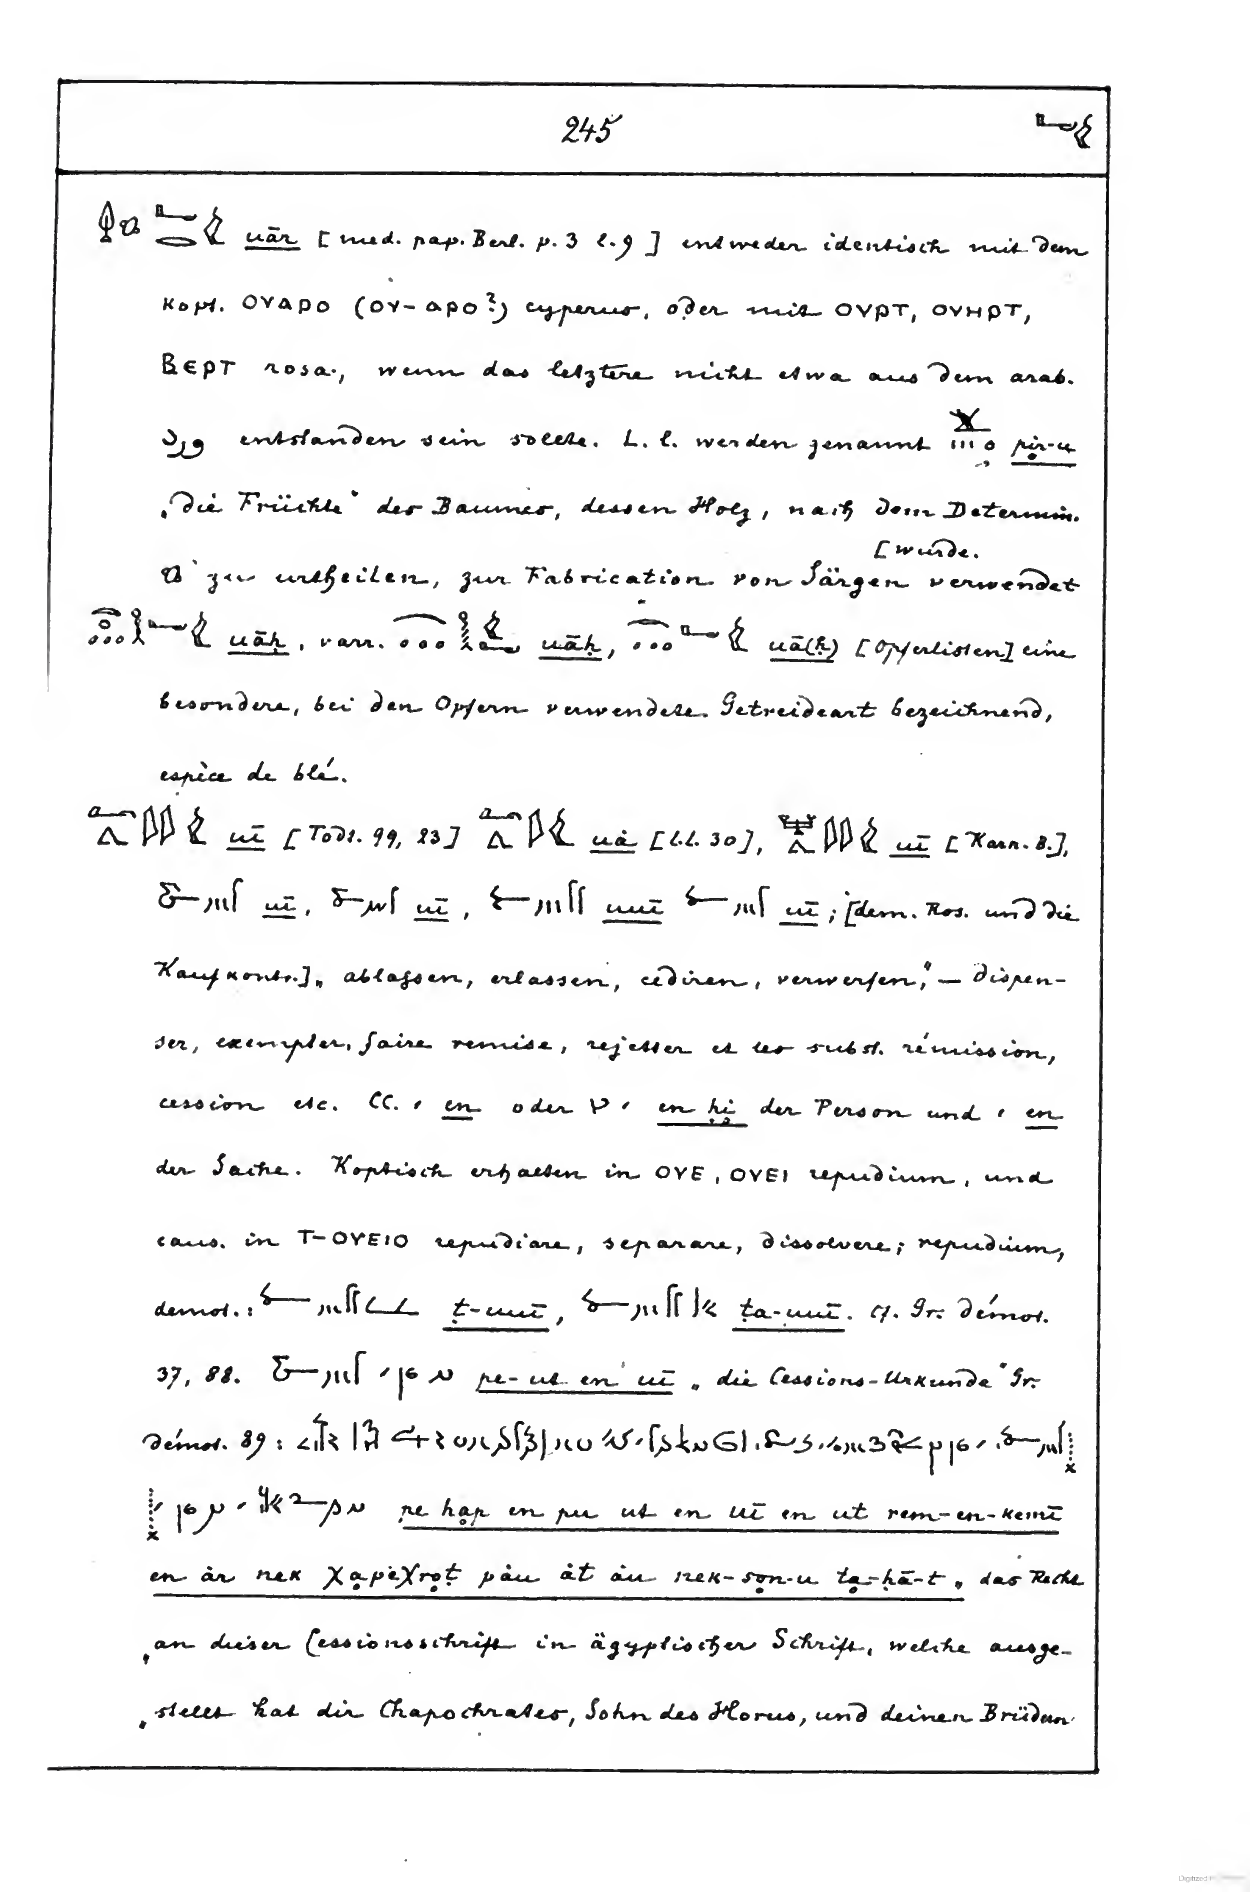 245
uār [med. pap. Berl. p. 3 l. 9] entweder identisch mit dem
kopt. ΟΥΑΡΟ (ΟΥ-ΑΡΟ?) cyperus, oder mit ΟΥΡΤ, ΟΥΗΡΤ,
ΒΕΡΤ rosa, wenn das letztere nicht etwa aus dem arab.
ورد entstanden sein sollte. L. l. werden genannt pir-u
„die Früchte“ des Baumes, dessen Holz, nach dem Determin.
[wurde.
zu urtheilen, zur Fabrication von Särgen verwendet
uāḥ, varr. uāḥ, uā(ḥ) [Opferlisten] eine
besondere, bei den Opfern verwendete Getreideart bezeichnend,
espèce de blé.
uī [Todt. 99, 23] uȧ [l.l. 30], uī [Karn. B.],
uī, uī, uuī uī; [dem. Ros. und die
Kaufkontr.] „ablassen, erlassen, cediren, verwerfen,“ — dispen-
ser, exempter, faire remise, rejetter et les subst. rémission,
cession etc. CC. en oder en ḥi der Person und en
der Sache. Koptisch erhalten in ΟΥΕ, ΟΥΕΙ repudium, und
caus. in Τ-ΟΥΕΙΟ repudiare, separare, dissolvere; repudium,
demot.: ṭ-uuī, ṭa-uuī. cf. Gr. démot.
37, 88. pe-ut en uī „die Cessions-Urkunde“ Gr.
démot. 89:
pe hap en pu ut en uī en ut rem-en-kemī
en ȧr nek χapeχroṭ pȧu ȧt ȧu nek-son-u ta-ḥā-t „das Recht
„an dieser Cessionsschrift in ägyptischer Schrift, welche ausge-
„stellt hat dir Chapochrates, Sohn des Horus, und deinen Brüdern